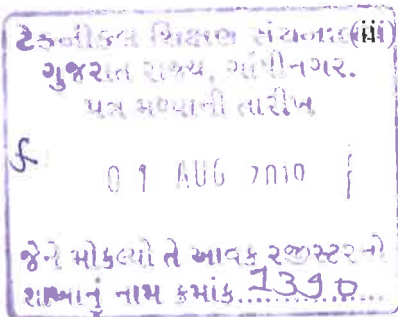 ટેકનીકલ શિક્ષણ (iii)
ગુજરાત રાજ્ય, ગાંધીનગર.
પત્ર મળ્યાની તારીખ
0 1 AUG
જેને મોકલ્યો તે આવક રજીસ્ટરનો
શાખાનું નામ ક્રમાંક